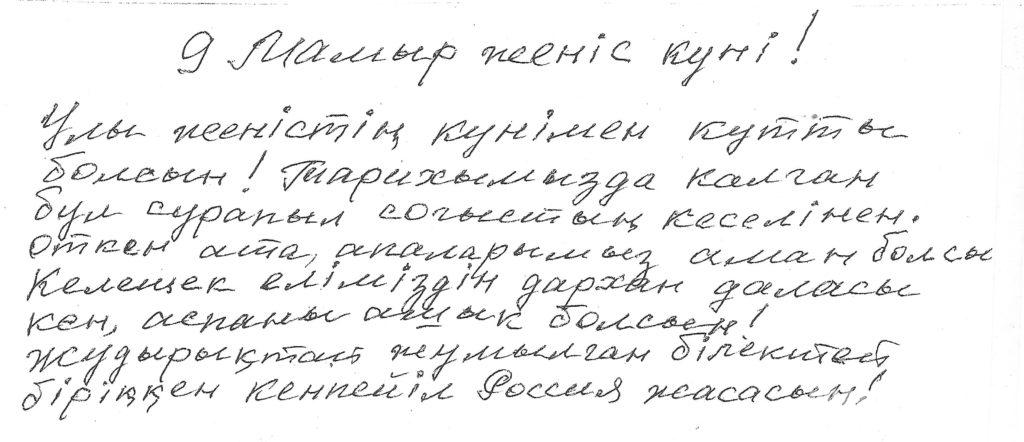 9 Мамыр женіс куні!
Улы женістің кунімен кутты
болсын! Тарихымызда калган
бул сурапыл согыстың кеселінен.
Откен ата, апаларымыз аман болсы
Келешек еліміздін дархан даласы
кен, аспаны ашык болсын!
Жудырықтай жумылган білектей
біріққен кенпейіл Россия жасасын!